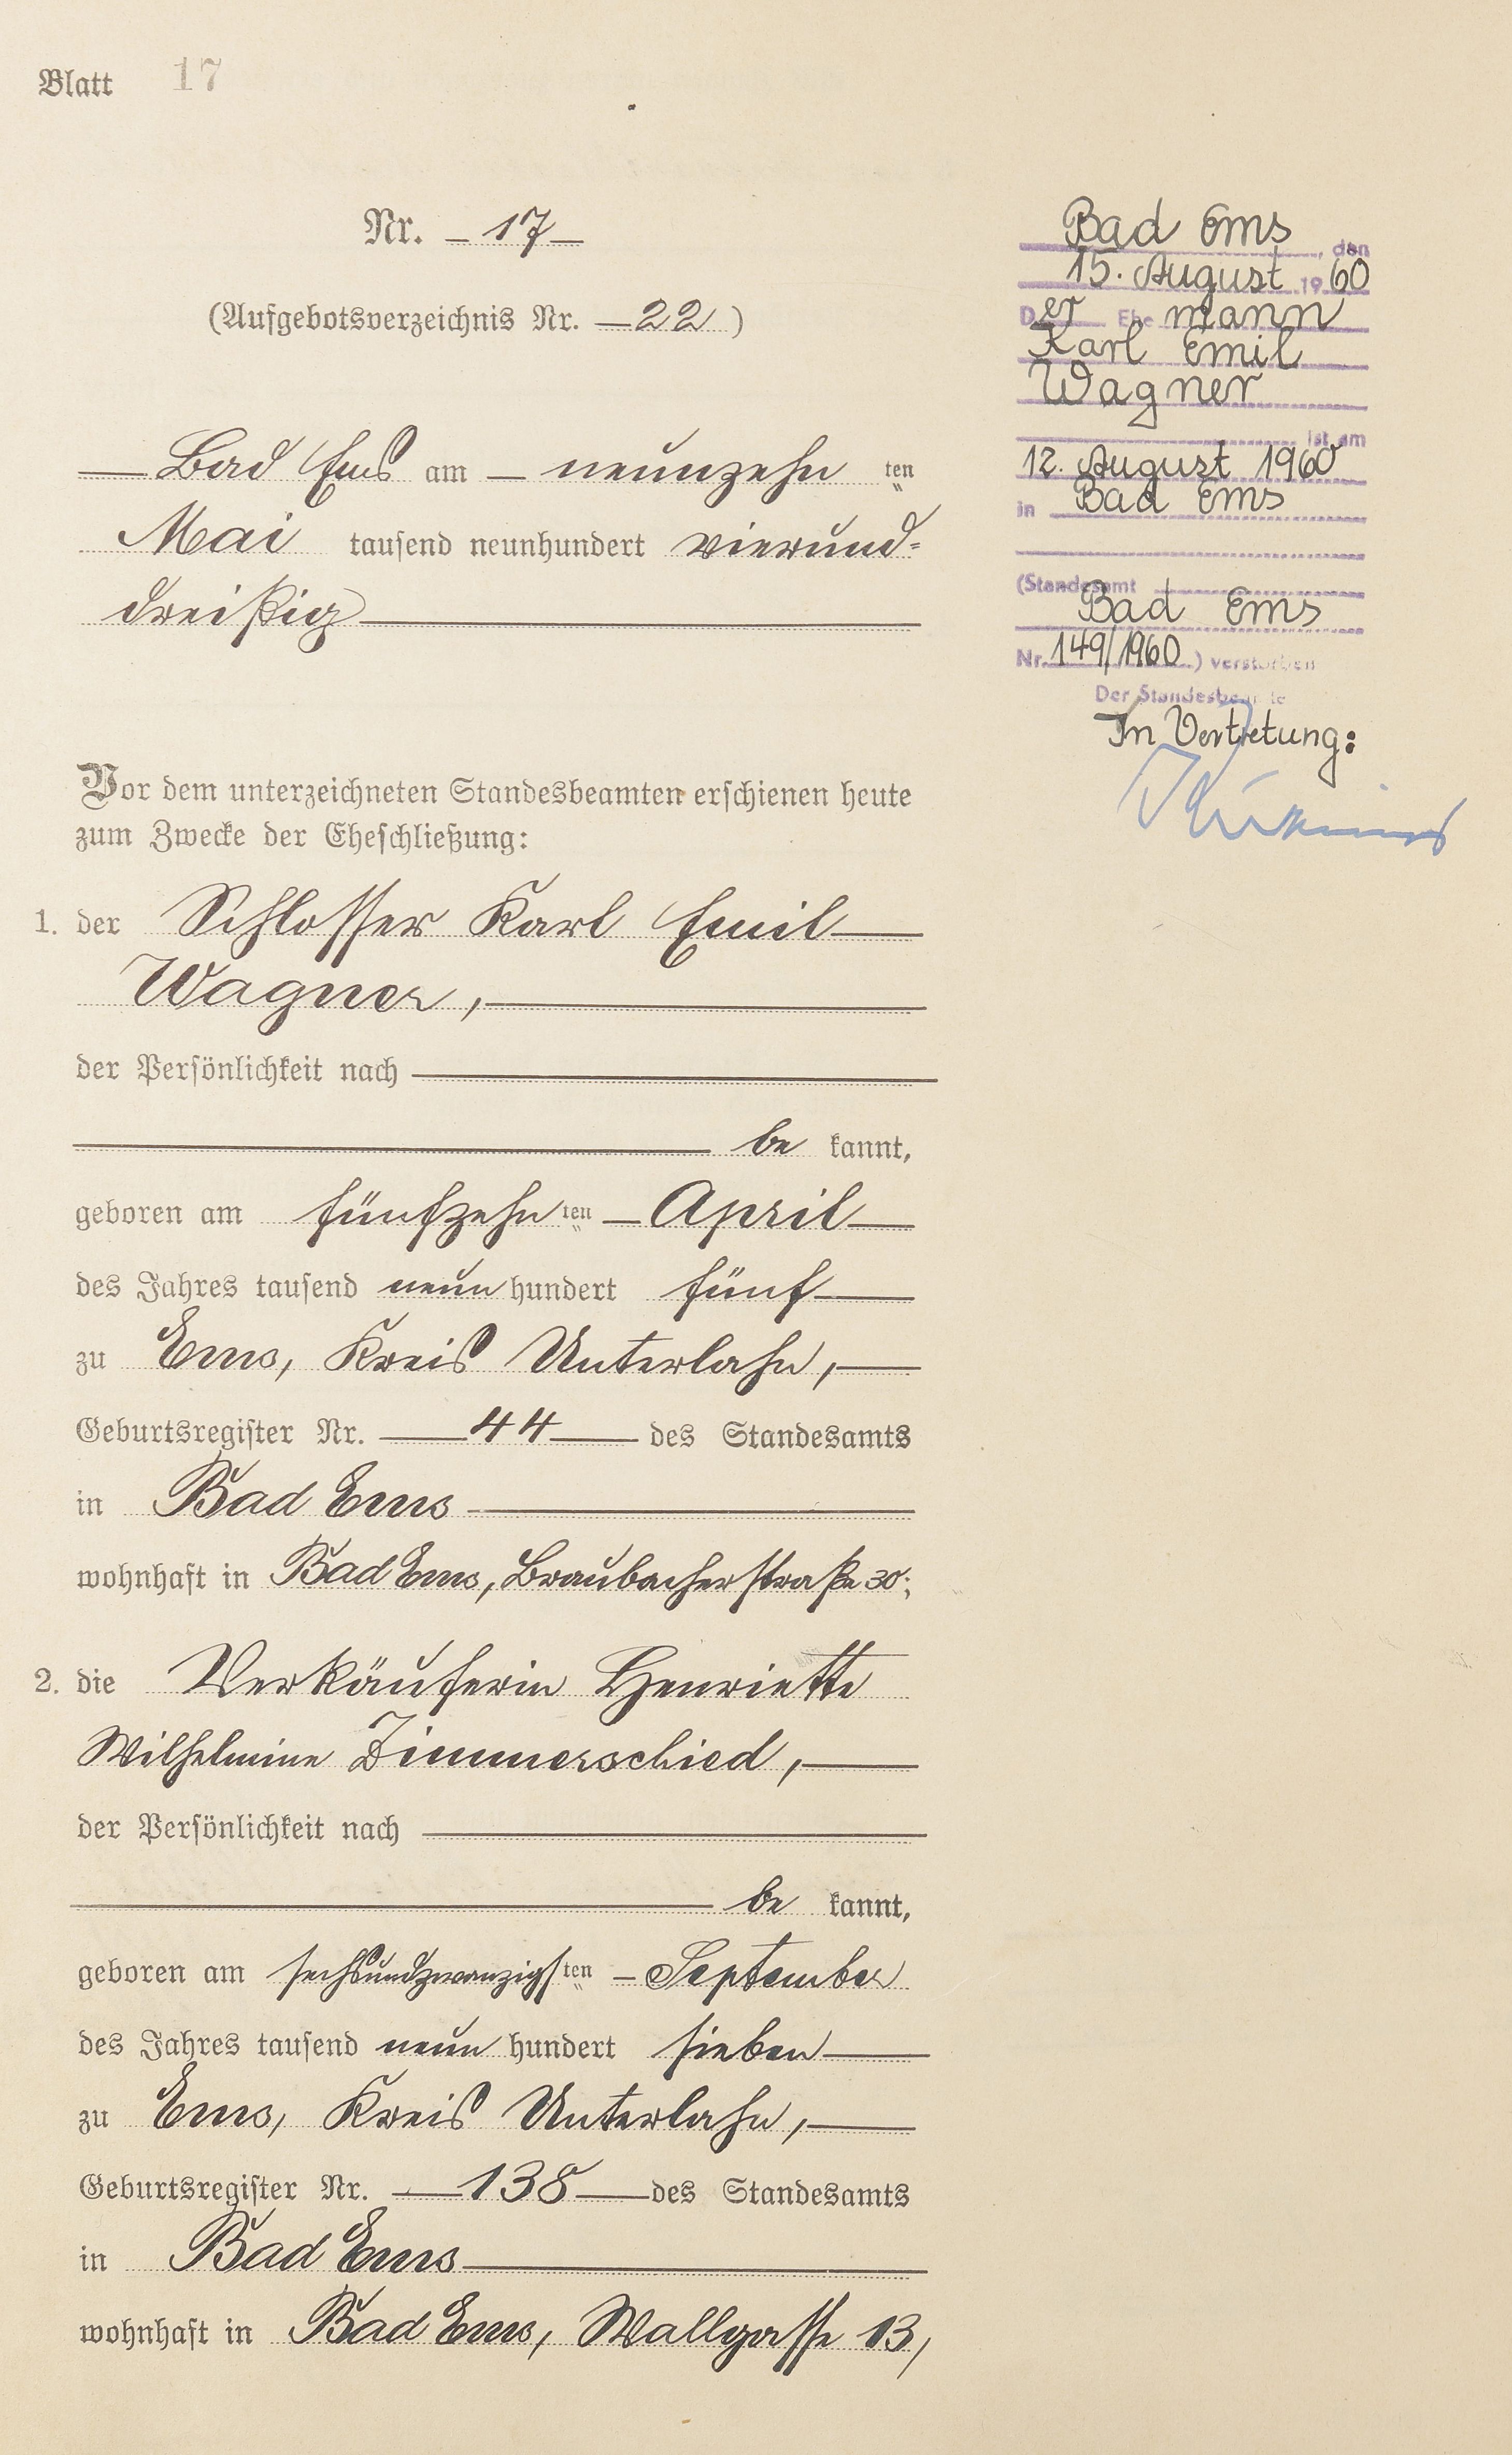 Blatt 17
Nr. 17
(Aufgebotsverzeichnis Nr. 22)
Bad Ems am neunzehn ten
Mai tausend neunhundert vierund-
dreißig
Vor dem unterzeichneten Standesbeamten erschienen heute
zum Zwecke der Eheschließung:
1. der Schlosser Karl Emil
Wagner,
der Persönlichkeit nach
be kannt,
geboren am fünfzehn ten April
des Jahres tausend neun hundert fünf
zu Ems, Kreis Unterlahn,
Geburtsregister Nr. 44 des Standesamts
in Bad Ems
wohnhaft in Bad Ems, Braubacherstraße 30;
2. die Verkäuferin Henriette
Wilhelmine Zimmerschied,
der Persönlichkeit nach
be kannt,
geboren am sechsundzwanzigs ten September
des Jahres tausend neun hundert sieben
zu Ems, Kreis Unterlahn,
Geburtsregister Nr. 138 des Standesamts
in Bad Ems
wohnhaft in Bad Ems, Wallgasse 13,
Bad Ems, den
15. August 1960
Der Ehe mann
Karl Emil
Wagner
ist am
12. August 1960
in Bad Ems
(Standesamt
Bad Ems
Nr. 149/1960) verstorben
Der Standesbeamte
In Vertretung: